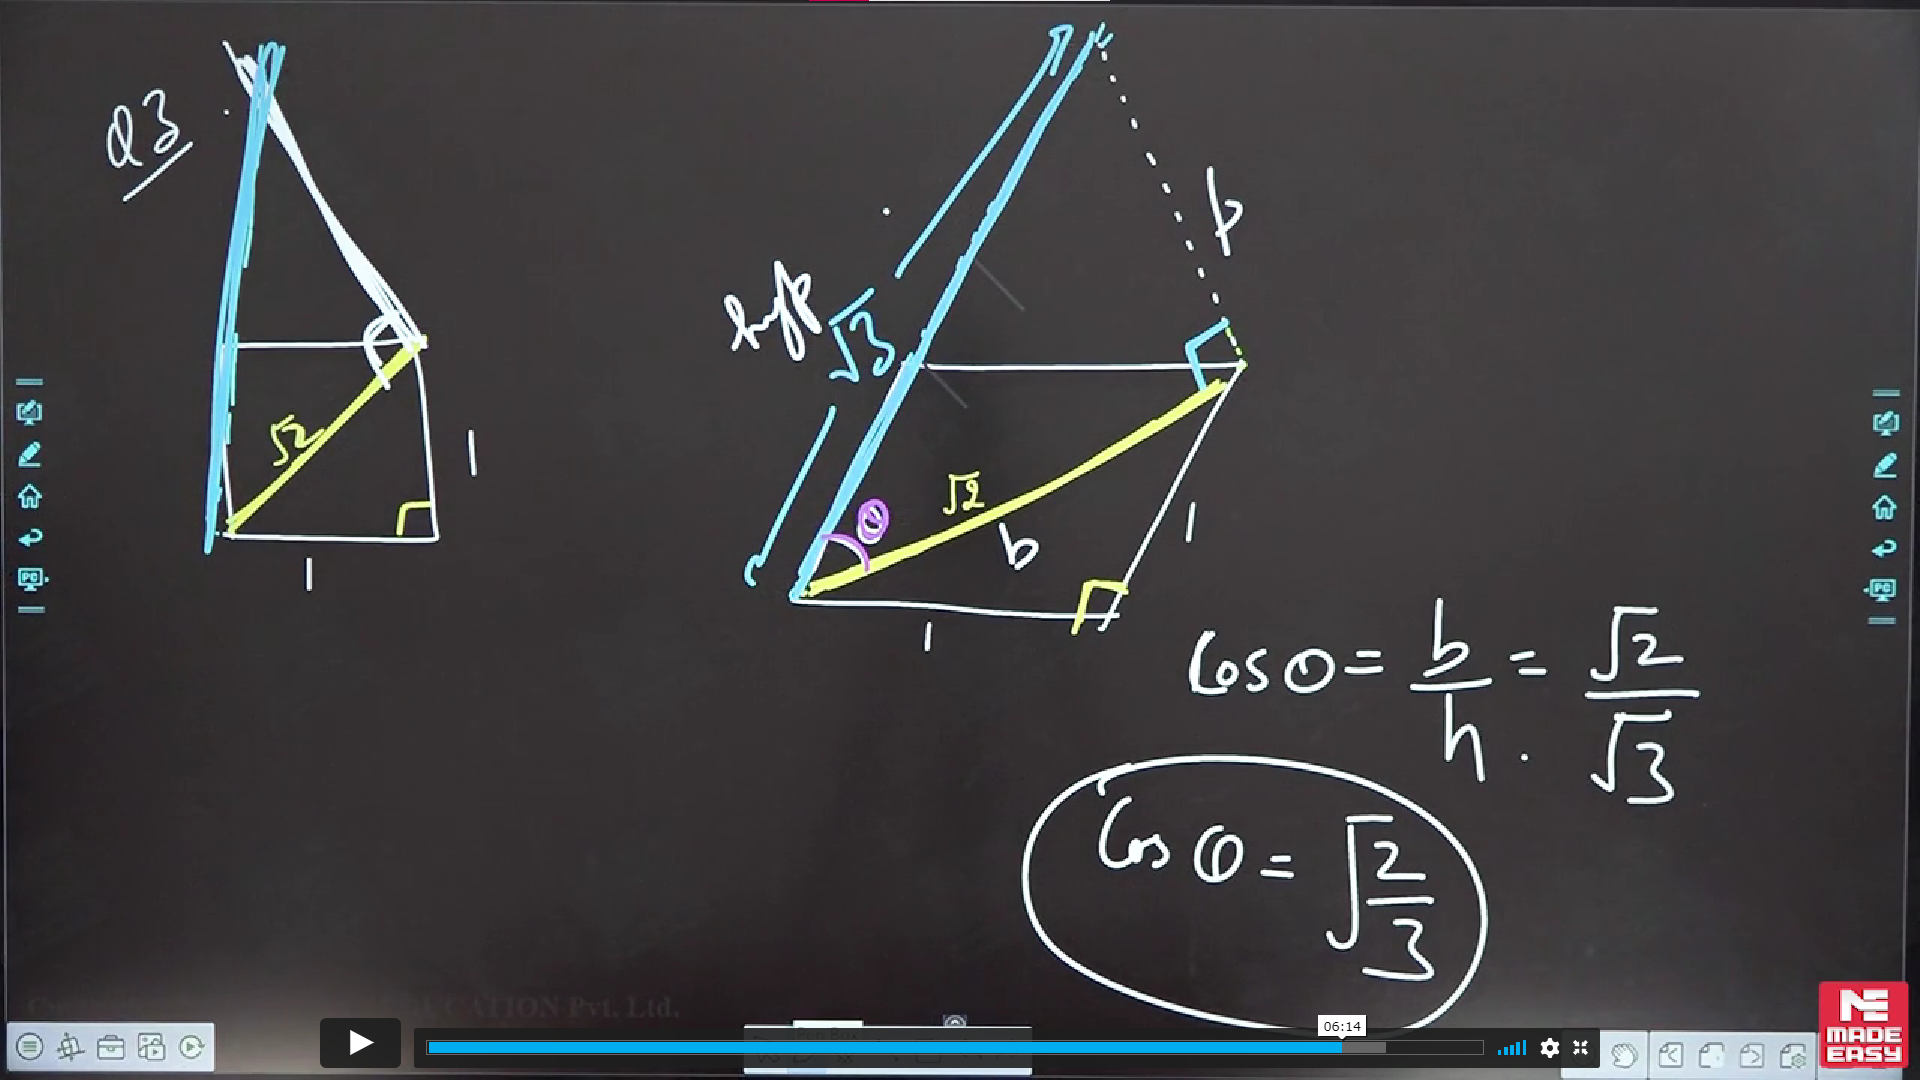 Q3
√2
1
1
hyp
√3
p
θ
√2
b
1
1
Cosθ = b/h = √2/√3
Cosθ = √2/3
CATION Pvt. Ltd.
06:14
PC
PC
MADE
EASY